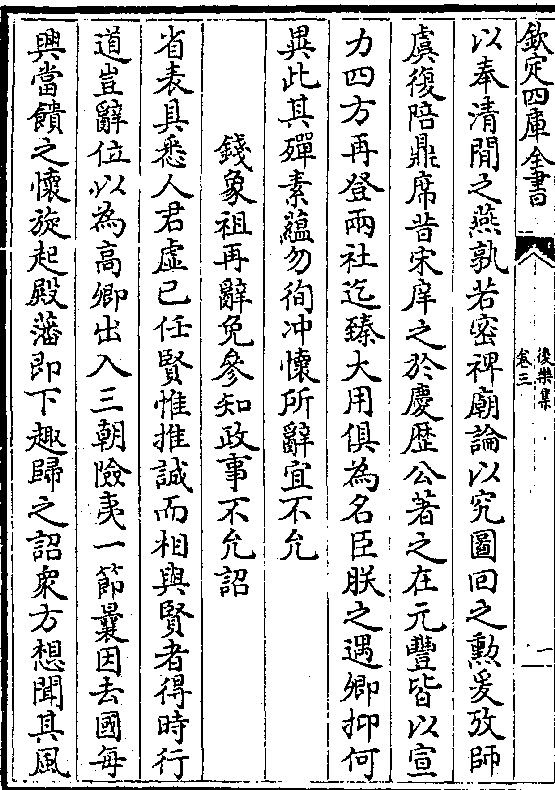 欽定四庫全書
後樂集
卷三
一
以奉清閒之燕孰若密禆廟論以究圖回之勲爰攷師
虞復陪鼎席昔宋庠之於慶歴公著之在元豐皆以宣
力四方再登兩社迄臻大用俱為名臣朕之遇卿抑何
異此其殫素蘊勿徇冲懐所辭宜不允
錢象祖再辭免參知政事不允詔
省表具悉人君虛已任賢惟推誠而相與賢者得時行
道豈辭位以為高卿出入三朝險夷一節曩因去國每
興當饋之懐旋起殿藩即下趣歸之詔衆方想聞其風